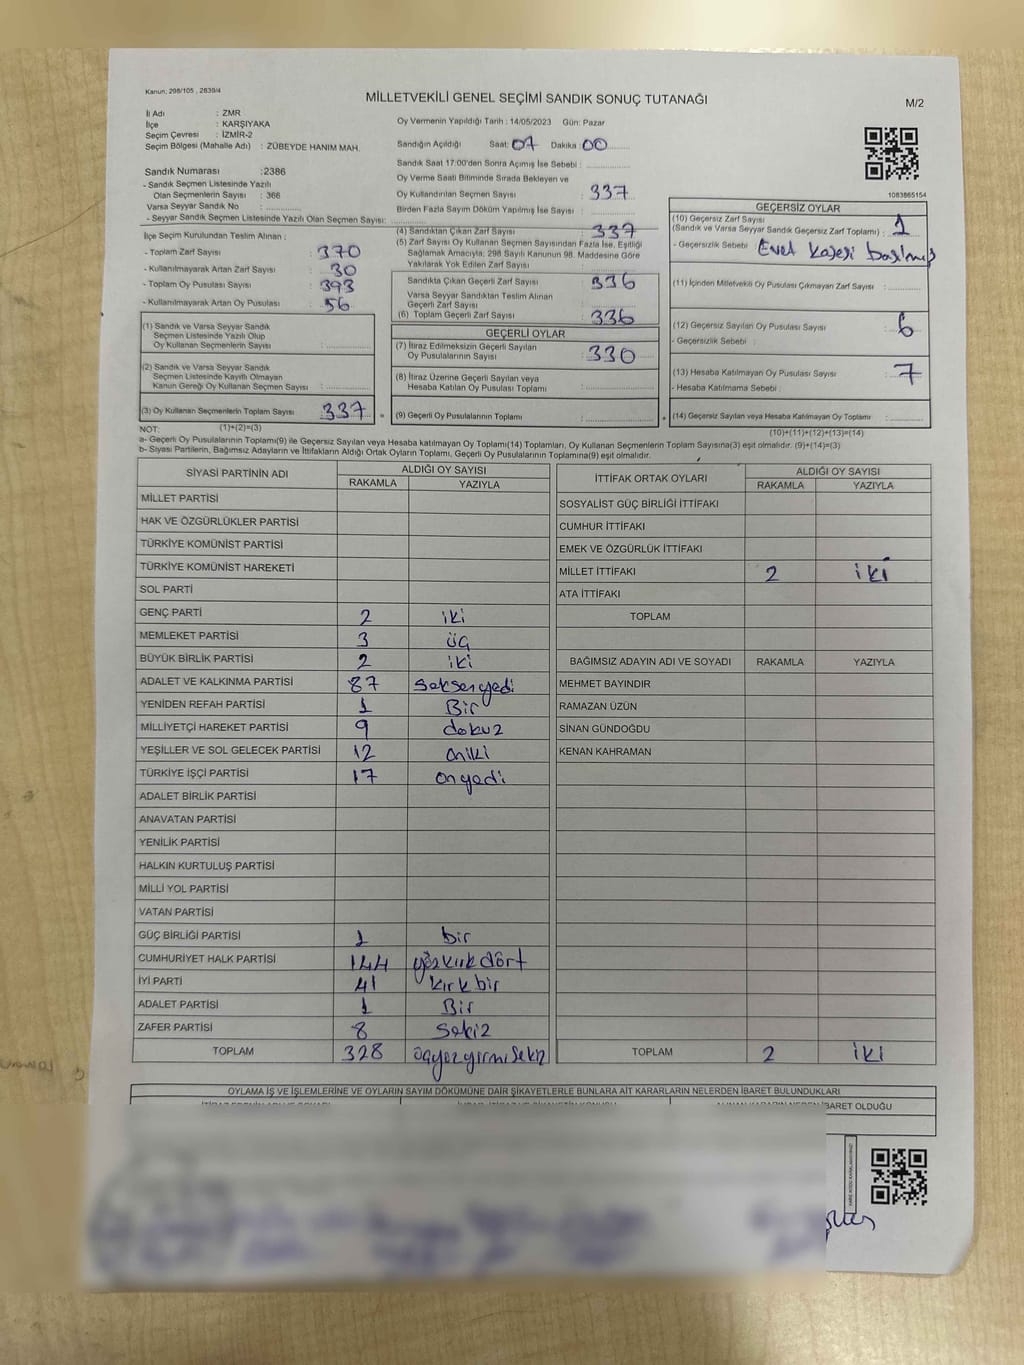 Kanun: 298/105 , 2839/4
MİLLETVEKİLİ GENEL SEÇİMİ SANDIK SONUÇ TUTANAĞI
M/2
İl Adı : ZMR
İlçe : KARŞIYAKA
Seçim Çevresi : İZMİR-2
Seçim Bölgesi (Mahalle Adı) : ZÜBEYDE HANIM MAH.
Sandık Numarası :2386
- Sandık Seçmen Listesinde Yazılı
Olan Seçmenlerin Sayısı : 366
Varsa Seyyar Sandık No :
- Seyyar Sandık Seçmen Listesinde Yazılı Olan Seçmen Sayısı:
Oy Vermenin Yapıldığı Tarih : 14/05/2023 Gün: Pazar
Sandığın Açıldığı Saat: 07 Dakika 00
Sandık Saat 17:00'den Sonra Açımış İse Sebebi :
Oy Verme Saati Bitiminde Sırada Bekleyen ve
Oy Kullandırılan Seçmen Sayısı : 337
Birden Fazla Sayım Döküm Yapılmış İse Sayısı :
1083865154
İlçe Seçim Kurulundan Teslim Alınan :
- Toplam Zarf Sayısı : 370
- Kullanılmayarak Artan Zarf Sayısı : 30
- Toplam Oy Pusulası Sayısı : 393
- Kullanılmayarak Artan Oy Pusulası : 56
(1) Sandık ve Varsa Seyyar Sandık
Seçmen Listesinde Yazılı Olup
Oy Kullanan Seçmenlerin Sayısı :
(2) Sandık ve Varsa Seyyar Sandık
Seçmen Listesinde Kayıtlı Olmayan
Kanun Gereği Oy Kullanan Seçmen Sayısı :
(3) Oy Kullanan Seçmenlerin Toplam Sayısı : 337
(1)+(2)=(3)
(4) Sandıktan Çıkan Zarf Sayısı : 337
(5) Zarf Sayısı Oy Kullanan Seçmen Sayısından Fazla İse, Eşitliği
Sağlamak Amacıyla; 298 Sayılı Kanunun 98. Maddesine Göre
Yakılarak Yok Edilen Zarf Sayısı :
Sandıkta Çıkan Geçerli Zarf Sayısı : 336
Varsa Seyyar Sandıktan Teslim Alınan
Geçerli Zarf Sayısı :
(6) Toplam Geçerli Zarf Sayısı : 336
GEÇERLİ OYLAR
(7) İtiraz Edilmeksizin Geçerli Sayılan
Oy Pusulalarının Sayısı : 330
(8) İtiraz Üzerine Geçerli Sayılan veya
Hesaba Katılan Oy Pusulası Toplamı :
= (9) Geçerli Oy Pusulalarının Toplamı :
GEÇERSİZ OYLAR
(10) Geçersiz Zarf Sayısı
(Sandık ve Varsa Seyyar Sandık Geçersiz Zarf Toplamı) : 1
- Geçersizlik Sebebi : Evet kaşesi basılmış
(11) İçinden Milletvekili Oy Pusulası Çıkmayan Zarf Sayısı :
(12) Geçersiz Sayılan Oy Pusulası Sayısı : 6
- Geçersizlik Sebebi :
(13) Hesaba Katılmayan Oy Pusulası Sayısı : 7
- Hesaba Katılmama Sebebi :
+ (14) Geçersiz Sayılan veya Hesaba Katılmayan Oy Toplamı :
(10)+(11)+(12)+(13)=(14)
NOT:
a- Geçerli Oy Pusulalarının Toplamı(9) ile Geçersiz Sayılan veya Hesaba katılmayan Oy Toplamı(14) Toplamları, Oy Kullanan Seçmenlerin Toplam Sayısına(3) eşit olmalıdır. (9)+(14)=(3)
b- Siyasi Partilerin, Bağımsız Adayların ve İttifakların Aldığı Ortak Oyların Toplamı, Geçerli Oy Pusulalarının Toplamına(9) eşit olmalıdır.
SİYASİ PARTİNİN ADI ALDIĞI OY SAYISI
RAKAMLA YAZIYLA
MİLLET PARTİSİ
HAK VE ÖZGÜRLÜKLER PARTİSİ
TÜRKİYE KOMÜNİST PARTİSİ
TÜRKİYE KOMÜNİST HAREKETİ
SOL PARTİ
GENÇ PARTİ 2 iki
MEMLEKET PARTİSİ 3 üç
BÜYÜK BİRLİK PARTİSİ 2 iki
ADALET VE KALKINMA PARTİSİ 87 seksenyedi
YENİDEN REFAH PARTİSİ 1 Bir
MİLLİYETÇİ HAREKET PARTİSİ 9 dokuz
YEŞİLLER VE SOL GELECEK PARTİSİ 12 oniki
TÜRKİYE İŞÇİ PARTİSİ 17 onyedi
ADALET BİRLİK PARTİSİ
ANAVATAN PARTİSİ
YENİLİK PARTİSİ
HALKIN KURTULUŞ PARTİSİ
MİLLİ YOL PARTİSİ
VATAN PARTİSİ
GÜÇ BİRLİĞİ PARTİSİ 1 bir
CUMHURİYET HALK PARTİSİ 144 yüzkırkdört
İYİ PARTİ 41 kırkbir
ADALET PARTİSİ 1 Bir
ZAFER PARTİSİ 8 sekiz
TOPLAM 328 üçyüzyirmisekiz
İTTİFAK ORTAK OYLARI ALDIĞI OY SAYISI
RAKAMLA YAZIYLA
SOSYALİST GÜÇ BİRLİĞİ İTTİFAKI
CUMHUR İTTİFAKI
EMEK VE ÖZGÜRLÜK İTTİFAKI
MİLLET İTTİFAKI 2 iki
ATA İTTİFAKI
TOPLAM
BAĞIMSIZ ADAYIN ADI VE SOYADI RAKAMLA YAZIYLA
MEHMET BAYINDIR
RAMAZAN ÜZÜN
SİNAN GÜNDOĞDU
KENAN KAHRAMAN
TOPLAM 2 iki
OYLAMA İŞ VE İŞLEMLERİNE VE OYLARIN SAYIM DÖKÜMÜNE DAİR ŞİKAYETLERLE BUNLARA AİT KARARLARIN NELERDEN İBARET BULUNDUKLARI
İBARET OLDUĞU